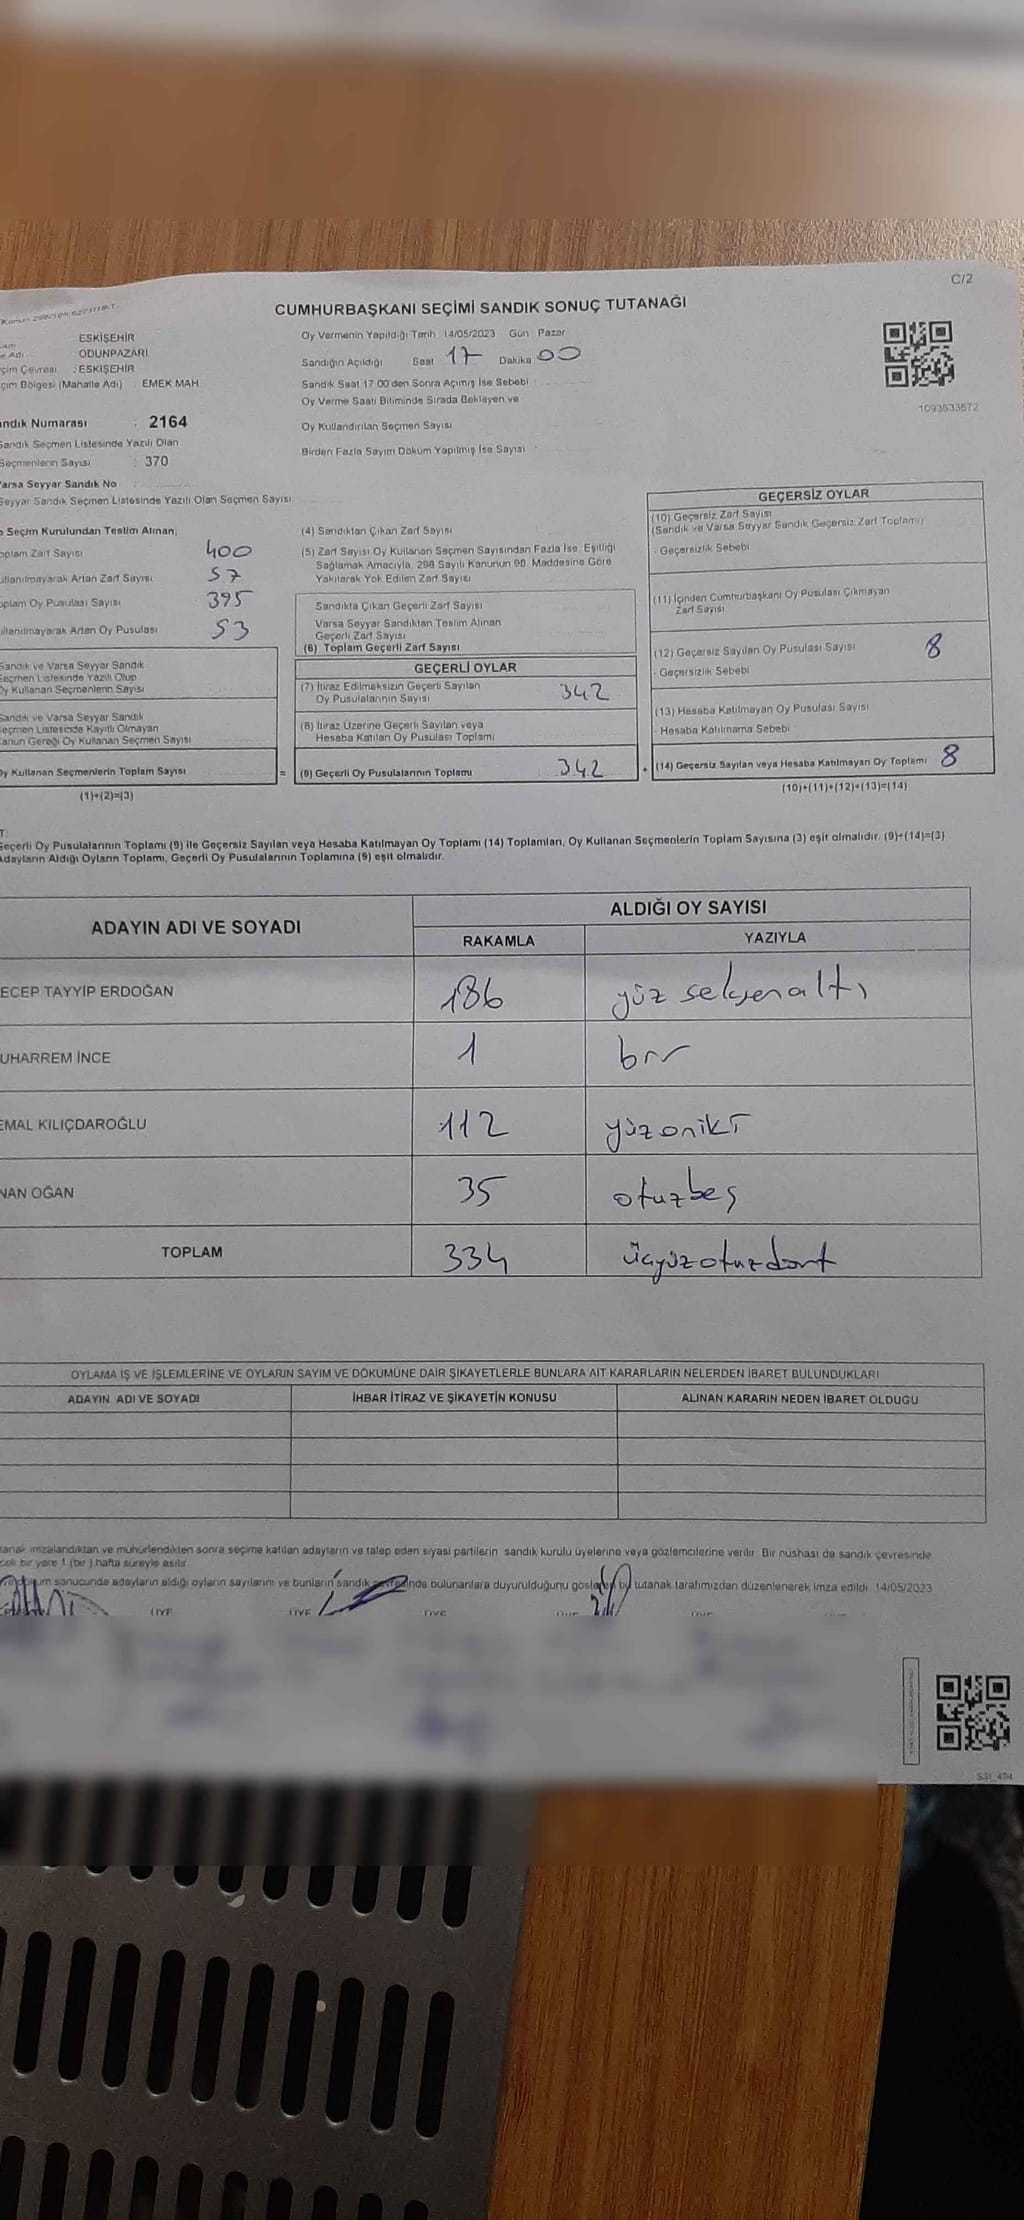 C/2
CUMHURBAŞKANI SEÇİMİ SANDIK SONUÇ TUTANAĞI
ESKİŞEHİR
ODUNPAZARI
çim Çevresi : ESKİŞEHİR
çim Bölgesi (Mahalle Adı) EMEK MAH
andık Numarası : 2164
Sandık Seçmen Listesinde Yazılı Olan
Seçmenlerin Sayısı : 370
Varsa Seyyar Sandık No :
Seyyar Sandık Seçmen Listesinde Yazılı Olan Seçmen Sayısı
Oy Vermenin Yapıldığı Tarih : 14/05/2023 Gün : Pazar
Sandığın Açıldığı Saat 17 Dakika 00
Sandık Saat 17 00'den Sonra Açımış İse Sebebi
Oy Verme Saati Bitiminde Sırada Bekleyen ve
Oy Kullandırılan Seçmen Sayısı
Birden Fazla Sayım Döküm Yapılmış İse Sayısı
1093633672
e Seçim Kurulundan Teslim Alınan;
oplam Zarf Sayısı 400
ullanılmayarak Artan Zarf Sayısı 57
oplam Oy Pusulası Sayısı 395
ullanılmayarak Artan Oy Pusulası 53
Sandık ve Varsa Seyyar Sandık
Seçmen Listesinde Yazılı Olup
Oy Kullanan Seçmenlerin Sayısı
Sandık ve Varsa Seyyar Sandık
Seçmen Listesinde Kayıtlı Olmayan
Kanun Gereği Oy Kullanan Seçmen Sayısı
Oy Kullanan Seçmenlerin Toplam Sayısı =
(1)+(2)=(3)
(4) Sandıktan Çıkan Zarf Sayısı
(5) Zarf Sayısı Oy Kullanan Seçmen Sayısından Fazla İse, Eşitliği
Sağlamak Amacıyla, 298 Sayılı Kanunun 98. Maddesine Göre
Yakılarak Yok Edilen Zarf Sayısı
Sandıkta Çıkan Geçerli Zarf Sayısı
Varsa Seyyar Sandıktan Teslim Alınan
Geçerli Zarf Sayısı
(6) Toplam Geçerli Zarf Sayısı
GEÇERLİ OYLAR
(7) İtiraz Edilmeksizin Geçerli Sayılan
Oy Pusulalarının Sayısı 342
(8) İtiraz Üzerine Geçerli Sayılan veya
Hesaba Katılan Oy Pusulası Toplamı
(9) Geçerli Oy Pusulalarının Toplamı 342 +
GEÇERSİZ OYLAR
(10) Geçersiz Zarf Sayısı
(Sandık ve Varsa Seyyar Sandık Geçersiz Zarf Toplamı)
- Geçersizlik Sebebi
(11) İçinden Cumhurbaşkanı Oy Pusulası Çıkmayan
Zarf Sayısı
(12) Geçersiz Sayılan Oy Pusulası Sayısı 8
- Geçersizlik Sebebi
(13) Hesaba Katılmayan Oy Pusulası Sayısı
- Hesaba Katılmama Sebebi
(14) Geçersiz Sayılan veya Hesaba Katılmayan Oy Toplamı 8
(10)+(11)+(12)+(13)=(14)
Geçerli Oy Pusulalarının Toplamı (9) ile Geçersiz Sayılan veya Hesaba Katılmayan Oy Toplamı (14) Toplamları, Oy Kullanan Seçmenlerin Toplam Sayısına (3) eşit olmalıdır. (9)+(14)=(3)
Adayların Aldığı Oyların Toplamı, Geçerli Oy Pusulalarının Toplamına (9) eşit olmalıdır.
ADAYIN ADI VE SOYADI
ALDIĞI OY SAYISI
RAKAMLA YAZIYLA
ECEP TAYYİP ERDOĞAN 186 yüz seksenaltı
UHARREM İNCE 1 bir
EMAL KILIÇDAROĞLU 112 yüzoniki
NAN OĞAN 35 otuzbeş
TOPLAM 334 üçyüzotuzdört
OYLAMA İŞ VE İŞLEMLERİNE VE OYLARIN SAYIM VE DÖKÜMÜNE DAİR ŞİKAYETLERLE BUNLARA AİT KARARLARIN NELERDEN İBARET BULUNDUKLARI
ADAYIN ADI VE SOYADI İHBAR İTİRAZ VE ŞİKAYETİN KONUSU ALINAN KARARIN NEDEN İBARET OLDUĞU
tanak imzalandıktan ve mühürlendikten sonra seçime katılan adayların ve talep eden siyasi partilerin sandık kurulu üyelerine veya gözlemcilerine verilir. Bir nüshası da sandık çevresinde
bir yere 1 (bir ) hafta süreyle asılır.
sonucunda adayların aldığı oyların sayılarını ve bunların sandık bulunanlara duyurulduğunu bu tutanak tarafımızdan düzenlenerek imza edildi. 14/05/2023
ÜYE ÜYE ÜYE ÜYE ÜYE